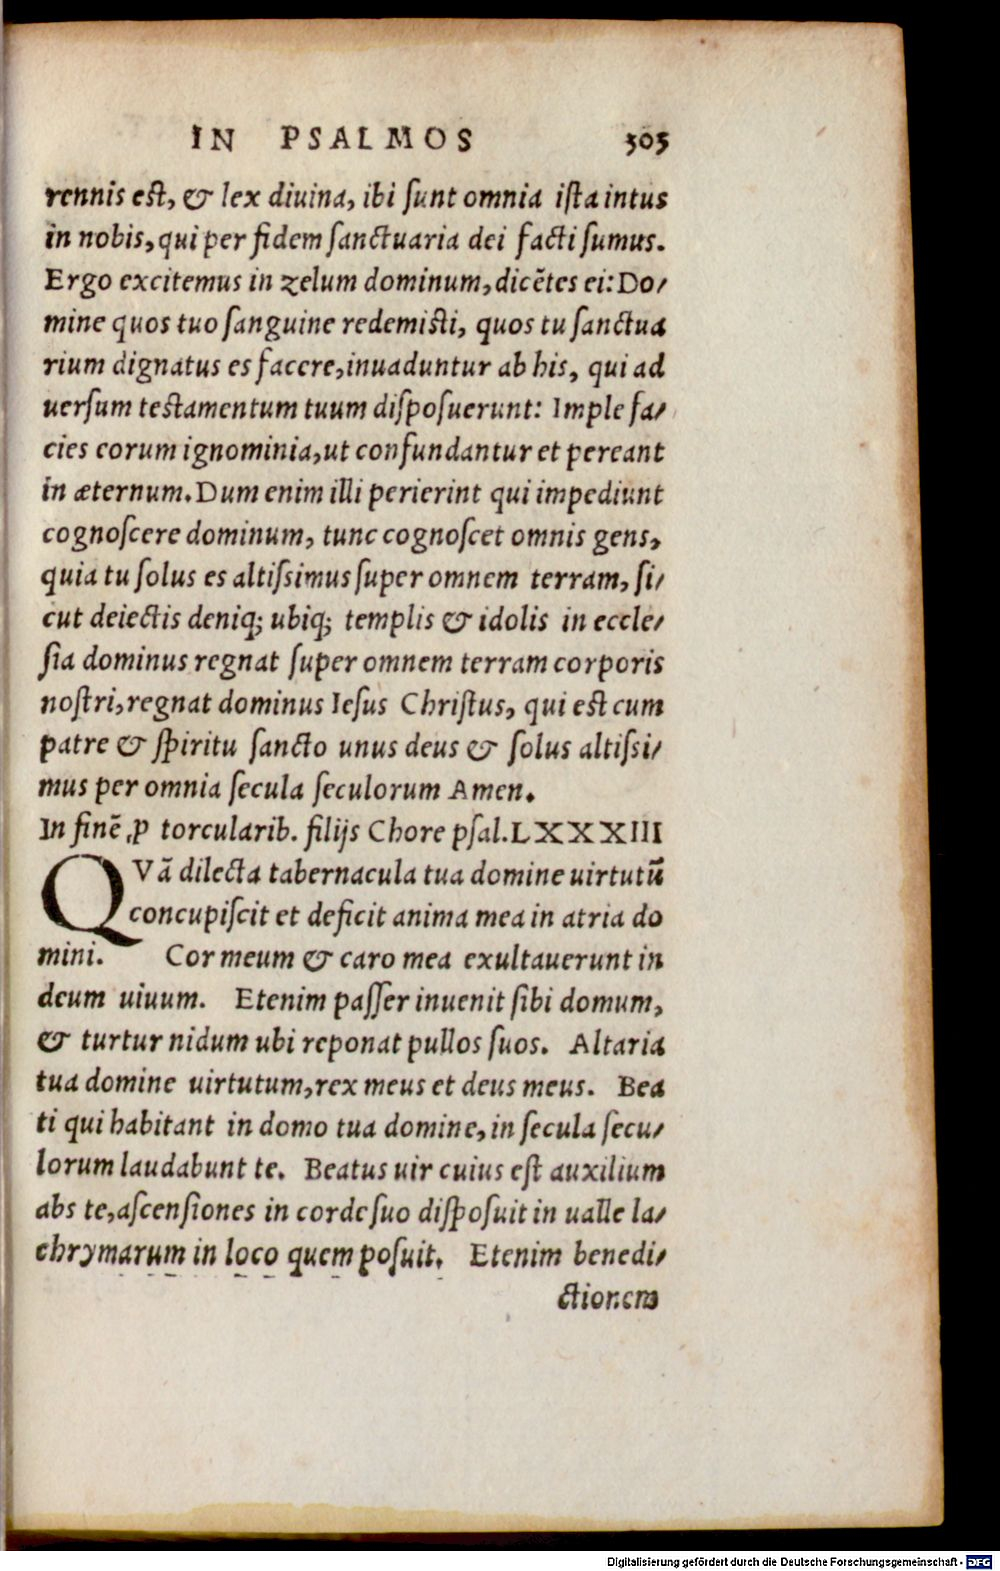 IN PSALMOS 303
rennis est, & lex diuina, ibi ſunt omnia iſta intus
in nobis, qui per fidem ſanctuaria dei facti ſumus.
Ergo excitemus in zelum dominum, dicẽtes ei: Do/
mine quos tuo ſanguine redemisti, quos tu ſanctua
rium dignatus es facere, inuaduntur ab his, qui ad
uerſum testamentum tuum diſpoſuerunt: Imple fa/
cies eorum ignominia, ut confundantur et pereant
in æternum. Dum enim illi perierint qui impediunt
cognoſcere dominum, tunc cognoſcet omnis gens,
quia tu ſolus es altiſsimus ſuper omnem terram, ſi/
cut deiectis deniq; ubiq; templis & idolis in eccle/
ſia dominus regnat ſuper omnem terram corporis
noſtri, regnat dominus Ieſus Chriſtus, qui est cum
patre & ſpiritu ſancto unus deus & ſolus altiſsi/
mus per omnia ſecula ſeculorum Amen.
In finẽ ꝓ torcularib. filijs Chore pſal. LXXXIII
QVã dilecta tabernacula tua domine uirtutũ
concupiſcit et deficit anima mea in atria do
mini. Cor meum & caro mea exultauerunt in
deum uiuum. Etenim paſſer inuenit ſibi domum,
& turtur nidum ubi reponat pullos ſuos. Altaria
tua domine uirtutum, rex meus et deus meus. Bea
ti qui habitant in domo tua domine, in ſecula ſecu/
lorum laudabunt te. Beatus uir cuius eſt auxilium
abs te, aſcenſiones in corde ſuo diſpoſuit in ualle la/
chrymarum in loco quem poſuit. Etenim benedi/
ctionem
Digitalisierung gefördert durch die Deutsche Forschungsgemeinschaft - DFG